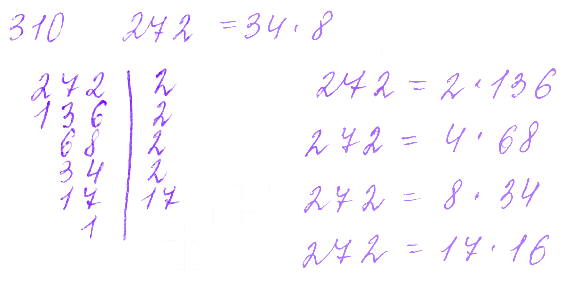 310 272 = 34 · 8
272 | 2
136 | 2
68 | 2
34 | 2
17 | 17
1 |
272 = 2 · 136
272 = 4 · 68
272 = 8 · 34
272 = 17 · 16